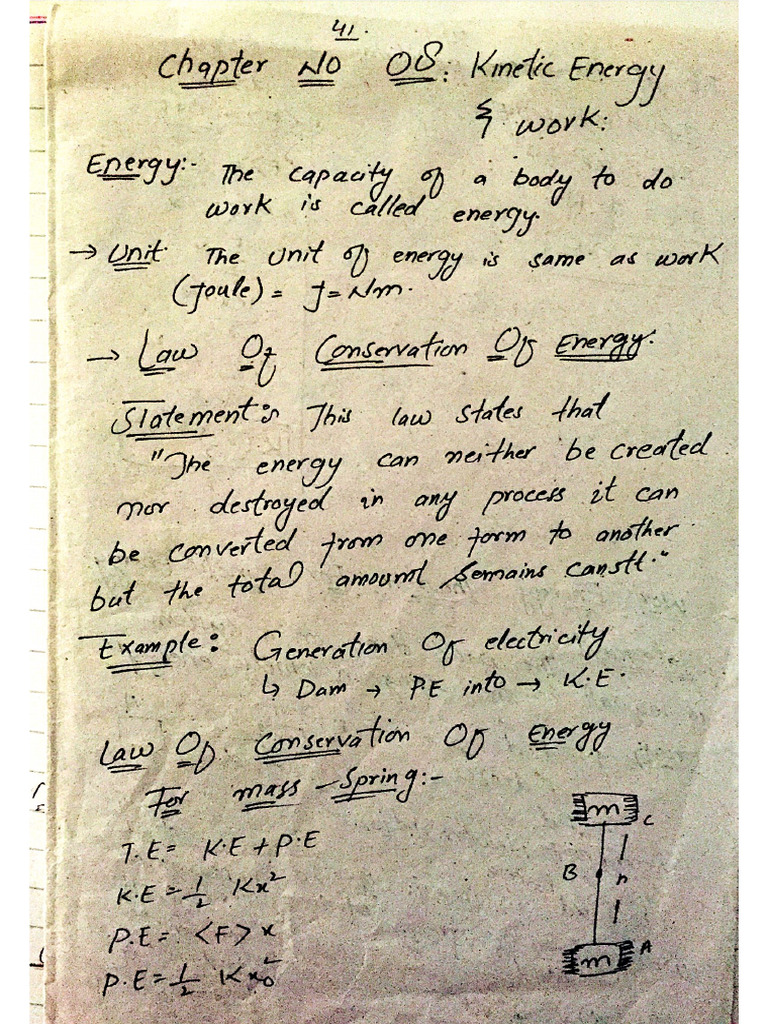 41.
Chapter NO 08: Kinetic Energy
& work:
Energy:- The capacity of a body to do
work is called energy.
→ Unit The unit of energy is same as work
(Joule) = J = Nm.
→ Law Of Conservation Of Energy:
Statement:- This law states that
"The energy can neither be created
nor destroyed in any process it can
be converted from one form to another
but the total amount remains canstt."
Example: Generation Of electricity
↳ Dam → P.E into → K.E.
Law Of Conservation Of Energy
For mass - Spring:-
T.E = K.E + P.E
K.E = 1/2 Kx²
P.E = <F> x
P.E = 1/2 K x₀²
m C
B h
m A